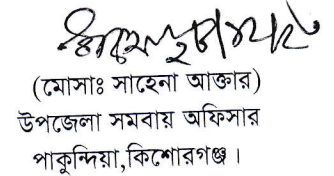 (মোসাঃ সাহেনা আক্তার)
উপজেলা সমবায় অফিসার
পাকুন্দিয়া,কিশোরগঞ্জ।